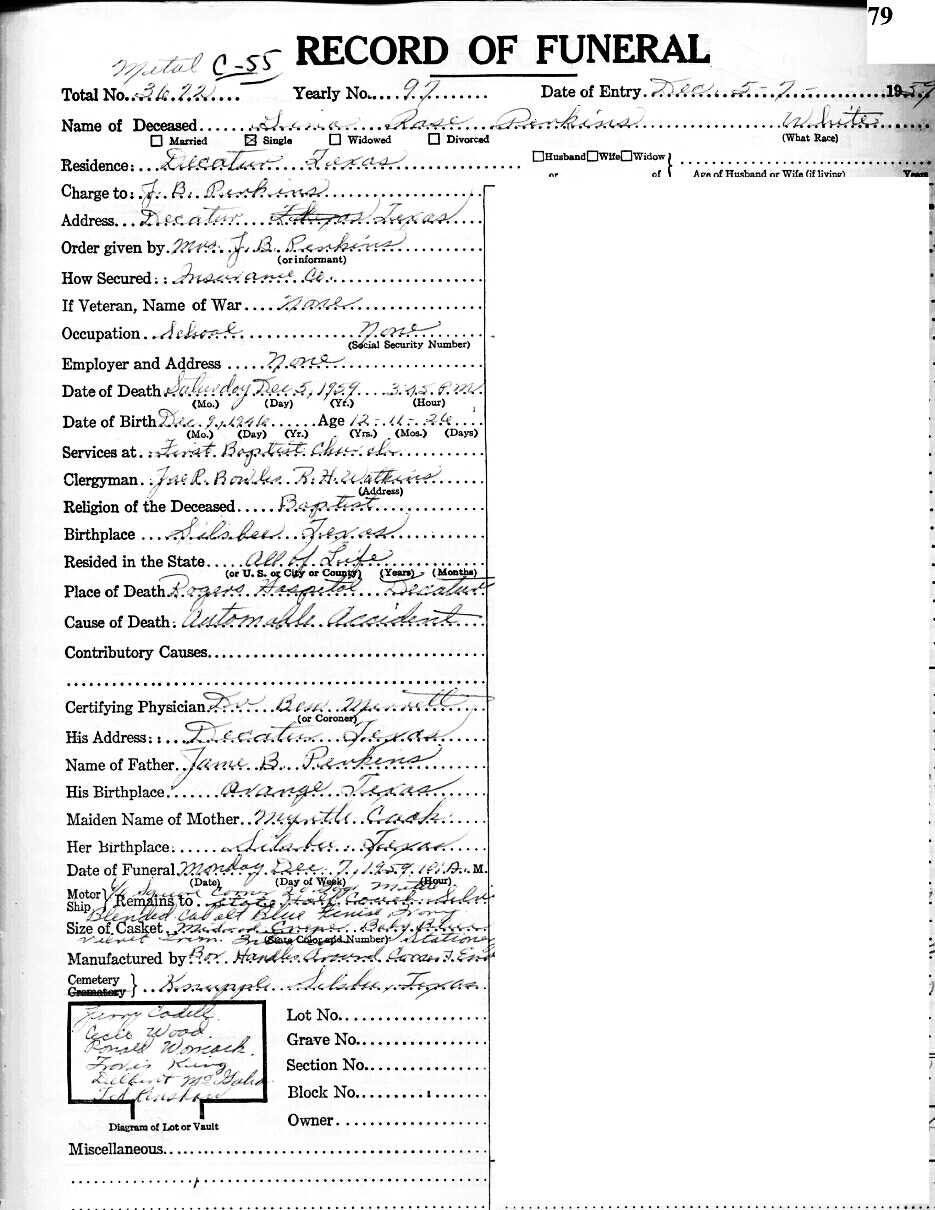 79
Metal C-55 RECORD OF FUNERAL
Total No. 3672 Yearly No. 97 Date of Entry Dec. 5-7- 1959
Name of Deceased Rose Perkins White
☐ Married ☒ Single ☐ Widowed ☐ Divorced (What Race)
Residence: Decatur Texas ☐Husband☐Wife☐Widow
or of Age of Husband or Wife (if living) Years
Charge to: J. B. Perkins
Address Decatur Texas
Order given by Mrs. J. B. Perkins
(or informant)
How Secured: Insurance Co.
If Veteran, Name of War None
Occupation School None
(Social Security Number)
Employer and Address None
Date of Death Saturday Dec 5, 1959 3:45 P.M.
(Mo.) (Day) (Yr.) (Hour)
Date of Birth Dec. 9, 1946 Age 12-11-26
(Mo.) (Day) (Yr.) (Yrs.) (Mos.) (Days)
Services at: First Baptist Church
Clergyman R. H. Watkins
(Address)
Religion of the Deceased Baptist
Birthplace Silsbee Texas
Resided in the State All of Life
(or U. S. or City or County) (Years) (Months)
Place of Death Rogers Hospital Decatur
Cause of Death: Automobile Accident
Contributory Causes
Certifying Physician Dr Ben
(or Coroner)
His Address: Decatur Texas
Name of Father Jame B. Perkins
His Birthplace Orange Texas
Maiden Name of Mother Myrtle Cook
Her Birthplace: Silsbee Texas
Date of Funeral Monday Dec. 7, 1959 10:A. M.
(Date) (Day of Week) (Hour)
Motor Ship Remains to
Blended Cobalt Blue
Size of Casket Crepe Baby Blue
(State Color and Number)
Manufactured by Box Handles Around
Cemetery Crematory Knupple Silsbee, Texas
Jerry
Wood
Ronald Womack
Travis King
Delbert
Ted
Lot No.
Grave No.
Section No.
Block No.
Owner
Diagram of Lot or Vault
Miscellaneous